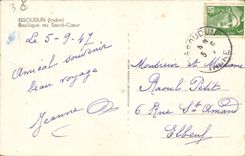 38
ISSOUDUN (Indre)
Basilique du Sacré-Cœur
Le 5-9-47
Amical souvenir
beau voyage
Jeanne
ISSOUDUN
INDRE
Monsieur et Madame
Raoul Petit
6 Rue St Amand
Elbeuf